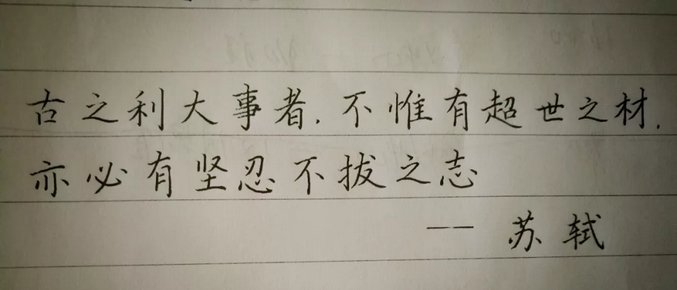 古之利大事者,不惟有超世之材,
亦必有坚忍不拔之志
—— 苏轼